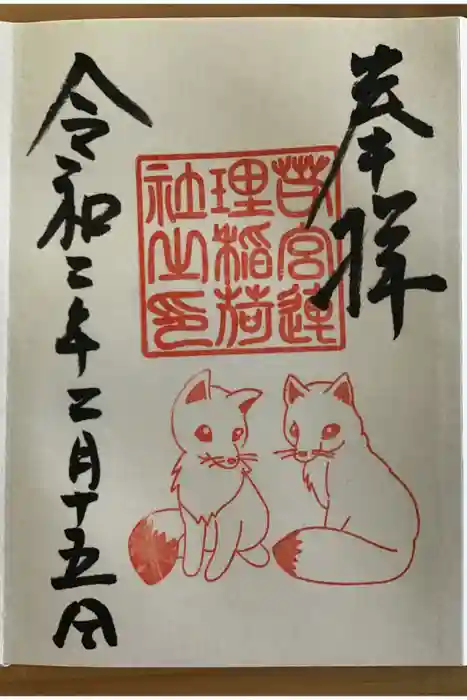 奉拝
若宮連
理稲荷
社之印
令和二年二月十五日